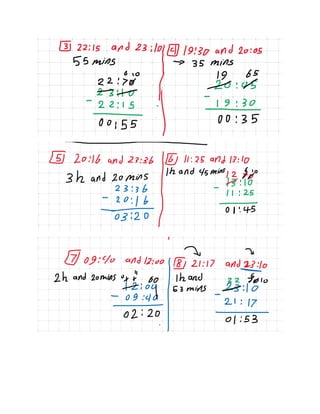 3) 22:15 and 23:10
55 mins
6 10
22:70
23:10
- 22:15
00:55
4) 19:30 and 20:05
→ 35 mins
19 65
- 19:30
00:35
5) 20:16 and 23:36
3h and 20 mins
23:36
- 20:16
03:20
6) 11:25 and 13:10
1h and 45 mins
12
13:10
- 11:25
01:45
7) 09:40 and 12:00
2h and 20 mins
60
- 09:40
02:20
8) 21:17 and 23:10
1h and
53 mins
23:10
- 21:17
01:53